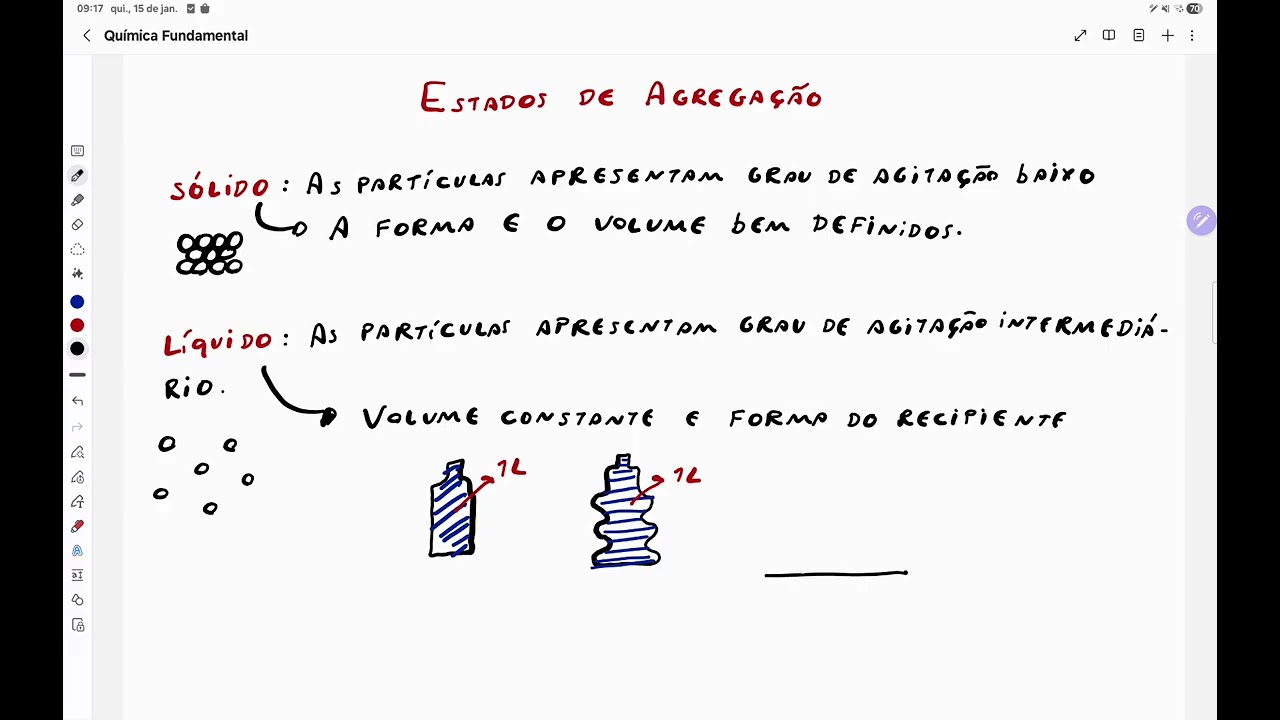 09:17 qui., 15 de jan.
70
Química Fundamental
ESTADOS DE AGREGAÇÃO
SÓLIDO : AS PARTÍCULAS APRESENTAM GRAU DE AGITAÇÃO BAIXO
A FORMA E O VOLUME BEM DEFINIDOS.
LÍQUIDO : AS PARTÍCULAS APRESENTAM GRAU DE AGITAÇÃO INTERMEDIÁ-
RIO.
VOLUME CONSTANTE E FORMA DO RECIPIENTE
1L
1L